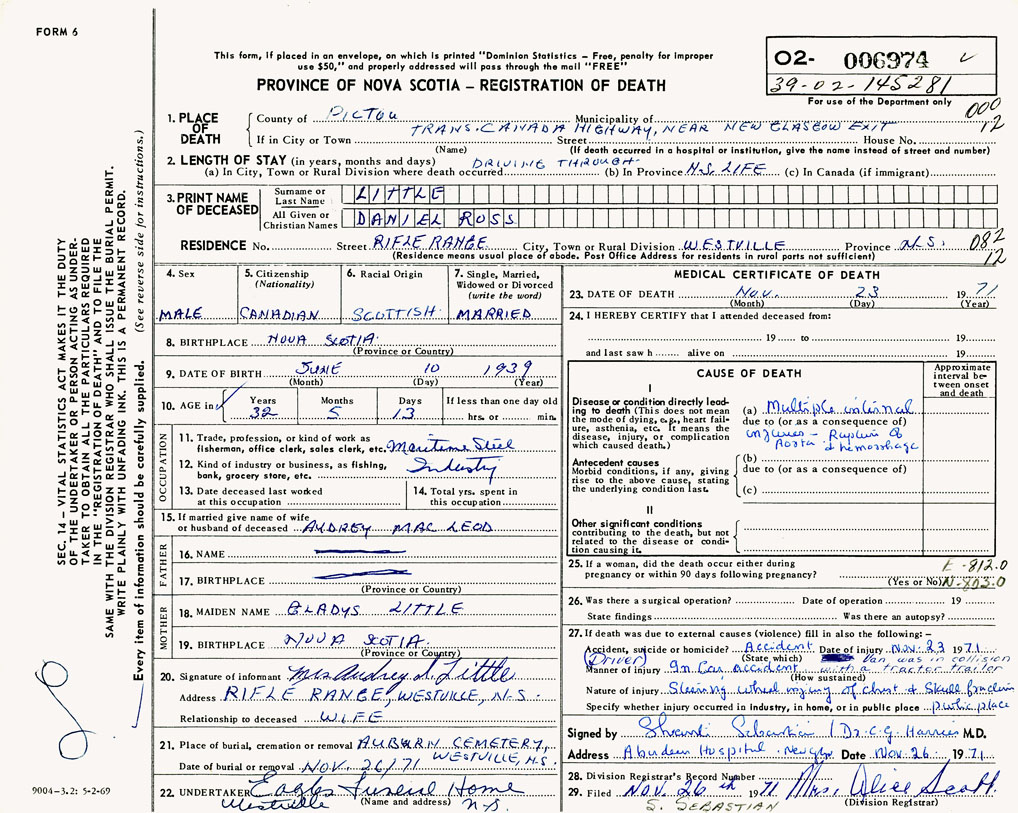 FORM 6
This form, if placed in an envelope, on which is printed "Dominion Statistics – Free, penalty for improper
use $50," and properly addressed will pass through the mail "FREE"
PROVINCE OF NOVA SCOTIA – REGISTRATION OF DEATH
02- 006974
39-02-145281
For use of the Department only
000
12
1. PLACE OF DEATH
County of PICTOU Municipality of
TRANS-CANADA HIGHWAY, NEAR NEW GLASGOW EXIT
If in City or Town Street House No.
(Name) (If death occurred in a hospital or institution, give the name instead of street and number)
2. LENGTH OF STAY (in years, months and days) DRIVING THROUGH
(a) In City, Town or Rural Division where death occurred (b) In Province N.S. LIFE (c) In Canada (if immigrant)
3. PRINT NAME OF DECEASED
Surname or Last Name LITTLE
All Given or Christian Names DANIEL ROSS
RESIDENCE No. Street RIFLE RANGE City, Town or Rural Division WESTVILLE Province N.S.
082
12
(Residence means usual place of abode. Post Office Address for residents in rural parts not sufficient)
4. Sex
MALE
5. Citizenship (Nationality)
CANADIAN
6. Racial Origin
SCOTTISH
7. Single, Married, Widowed or Divorced (write the word)
MARRIED
8. BIRTHPLACE NOVA SCOTIA
(Province or Country)
9. DATE OF BIRTH JUNE 10 1939
(Month) (Day) (Year)
10. AGE in Years Months Days If less than one day old
32 5 13 hrs. or min.
OCCUPATION
11. Trade, profession, or kind of work as
fisherman, office clerk, sales clerk, etc. Maritime Steel
12. Kind of industry or business, as fishing, Industry
bank, grocery store, etc.
13. Date deceased last worked at this occupation
14. Total yrs. spent in this occupation
15. If married give name of wife
or husband of deceased AUDREY MAC LEOD
FATHER
16. NAME
17. BIRTHPLACE
(Province or Country)
MOTHER
18. MAIDEN NAME GLADYS LITTLE
19. BIRTHPLACE NOVA SCOTIA
(Province or Country)
20. Signature of informant Mrs Audrey Little
Address RIFLE RANGE, WESTVILLE, N.S.
Relationship to deceased WIFE
21. Place of burial, cremation or removal AUBURN CEMETERY,
WESTVILLE, N.S.
Date of burial or removal NOV. 26/71
22. UNDERTAKER Eagles Funeral Home
(Name and address)
Westville N.S.
MEDICAL CERTIFICATE OF DEATH
23. DATE OF DEATH Nov. 23 1971
(Month) (Day) (Year)
24. I HEREBY CERTIFY that I attended deceased from:
19 to 19
and last saw h alive on 19
CAUSE OF DEATH
Approximate interval between onset and death
I
Disease or condition directly leading to death (This does not mean the mode of dying, e.g., heart failure, asthenia, etc. It means the disease, injury, or complication which caused death.)
(a) Multiple internal
due to (or as a consequence of)
injuries – Rupture of
Aorta & hemorrhage
Antecedent causes
Morbid conditions, if any, giving rise to the above cause, stating the underlying condition last.
(b)
due to (or as a consequence of)
(c)
II
Other significant conditions
contributing to the death, but not related to the disease or condition causing it.
25. If a woman, did the death occur either during
pregnancy or within 90 days following pregnancy?
(Yes or No)
E-812.0
N-803.0
26. Was there a surgical operation? Date of operation 19
State findings Was there an autopsy?
27. If death was due to external causes (violence) fill in also the following:–
Accident, suicide or homicide? Accident Date of injury Nov. 23 1971
(State which)
(Driver) Van was in collision
Manner of injury In Car accident with a tractor trailer
(How sustained)
Nature of injury Steering wheel injury of chest & Skull fracture
Specify whether injury occurred in industry, in home, or in public place public place
Signed by Shanti Sebastian / Dr. C.G. Harries M.D.
Address Aberdeen Hospital Date Nov. 26 1971
28. Division Registrar's Record Number
29. Filed Nov. 26th 1971 Mrs. Alice Scott
(Division Registrar)
S. SEBASTIAN
SEC. 14 – VITAL STATISTICS ACT MAKES IT THE DUTY
OF THE UNDERTAKER OR PERSON ACTING AS UNDER-
TAKER TO OBTAIN ALL THE PARTICULARS REQUIRED
IN THE "REGISTRATION OF DEATH" AND TO FILE THE
SAME WITH THE DIVISION REGISTRAR WHO SHALL ISSUE THE BURIAL PERMIT.
WRITE PLAINLY WITH UNFADING INK. THIS IS A PERMANENT RECORD.
Every item of information should be carefully supplied. (See reverse side for instructions.)
9004-3.2: 5-2-69